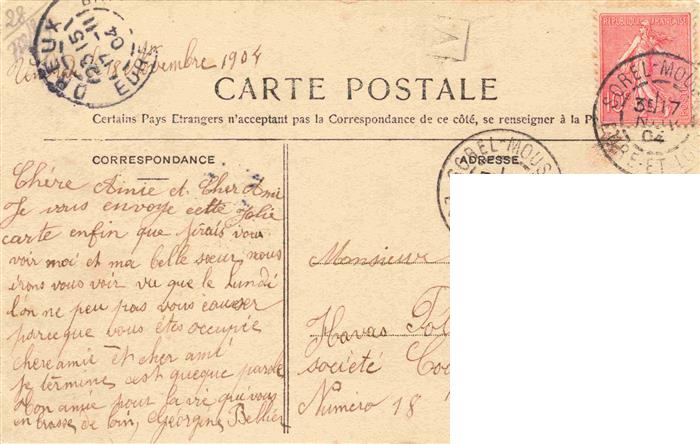 28
DREUX
23 15
17 -11
04
EURE
novembre 1904
CARTE POSTALE
Certains Pays Etrangers n'acceptant pas la Correspondance de ce côté, se renseigner à la P
REPUBLIQUE FRANÇAISE
SOREL-MOUS
3E 17
04
EURE-ET-LO
CORRESPONDANCE
ADRESSE
SOREL-MOUS
Chère Amie et Cher Ami
Je vous envoye cette Jolie
carte enfin que jirais vous
voir moi et ma belle sœur, nous
irons vous voir vu que le Lundi
l'on ne peu pas vous causer
parceque vous étes occupée
chere amie et cher ami
Je termine cest queque parole
Ton amie pour la vie qui vous
en brasse de loin, Georgine Bellier
Monsieur
Havas
société Coo
Numéro 18